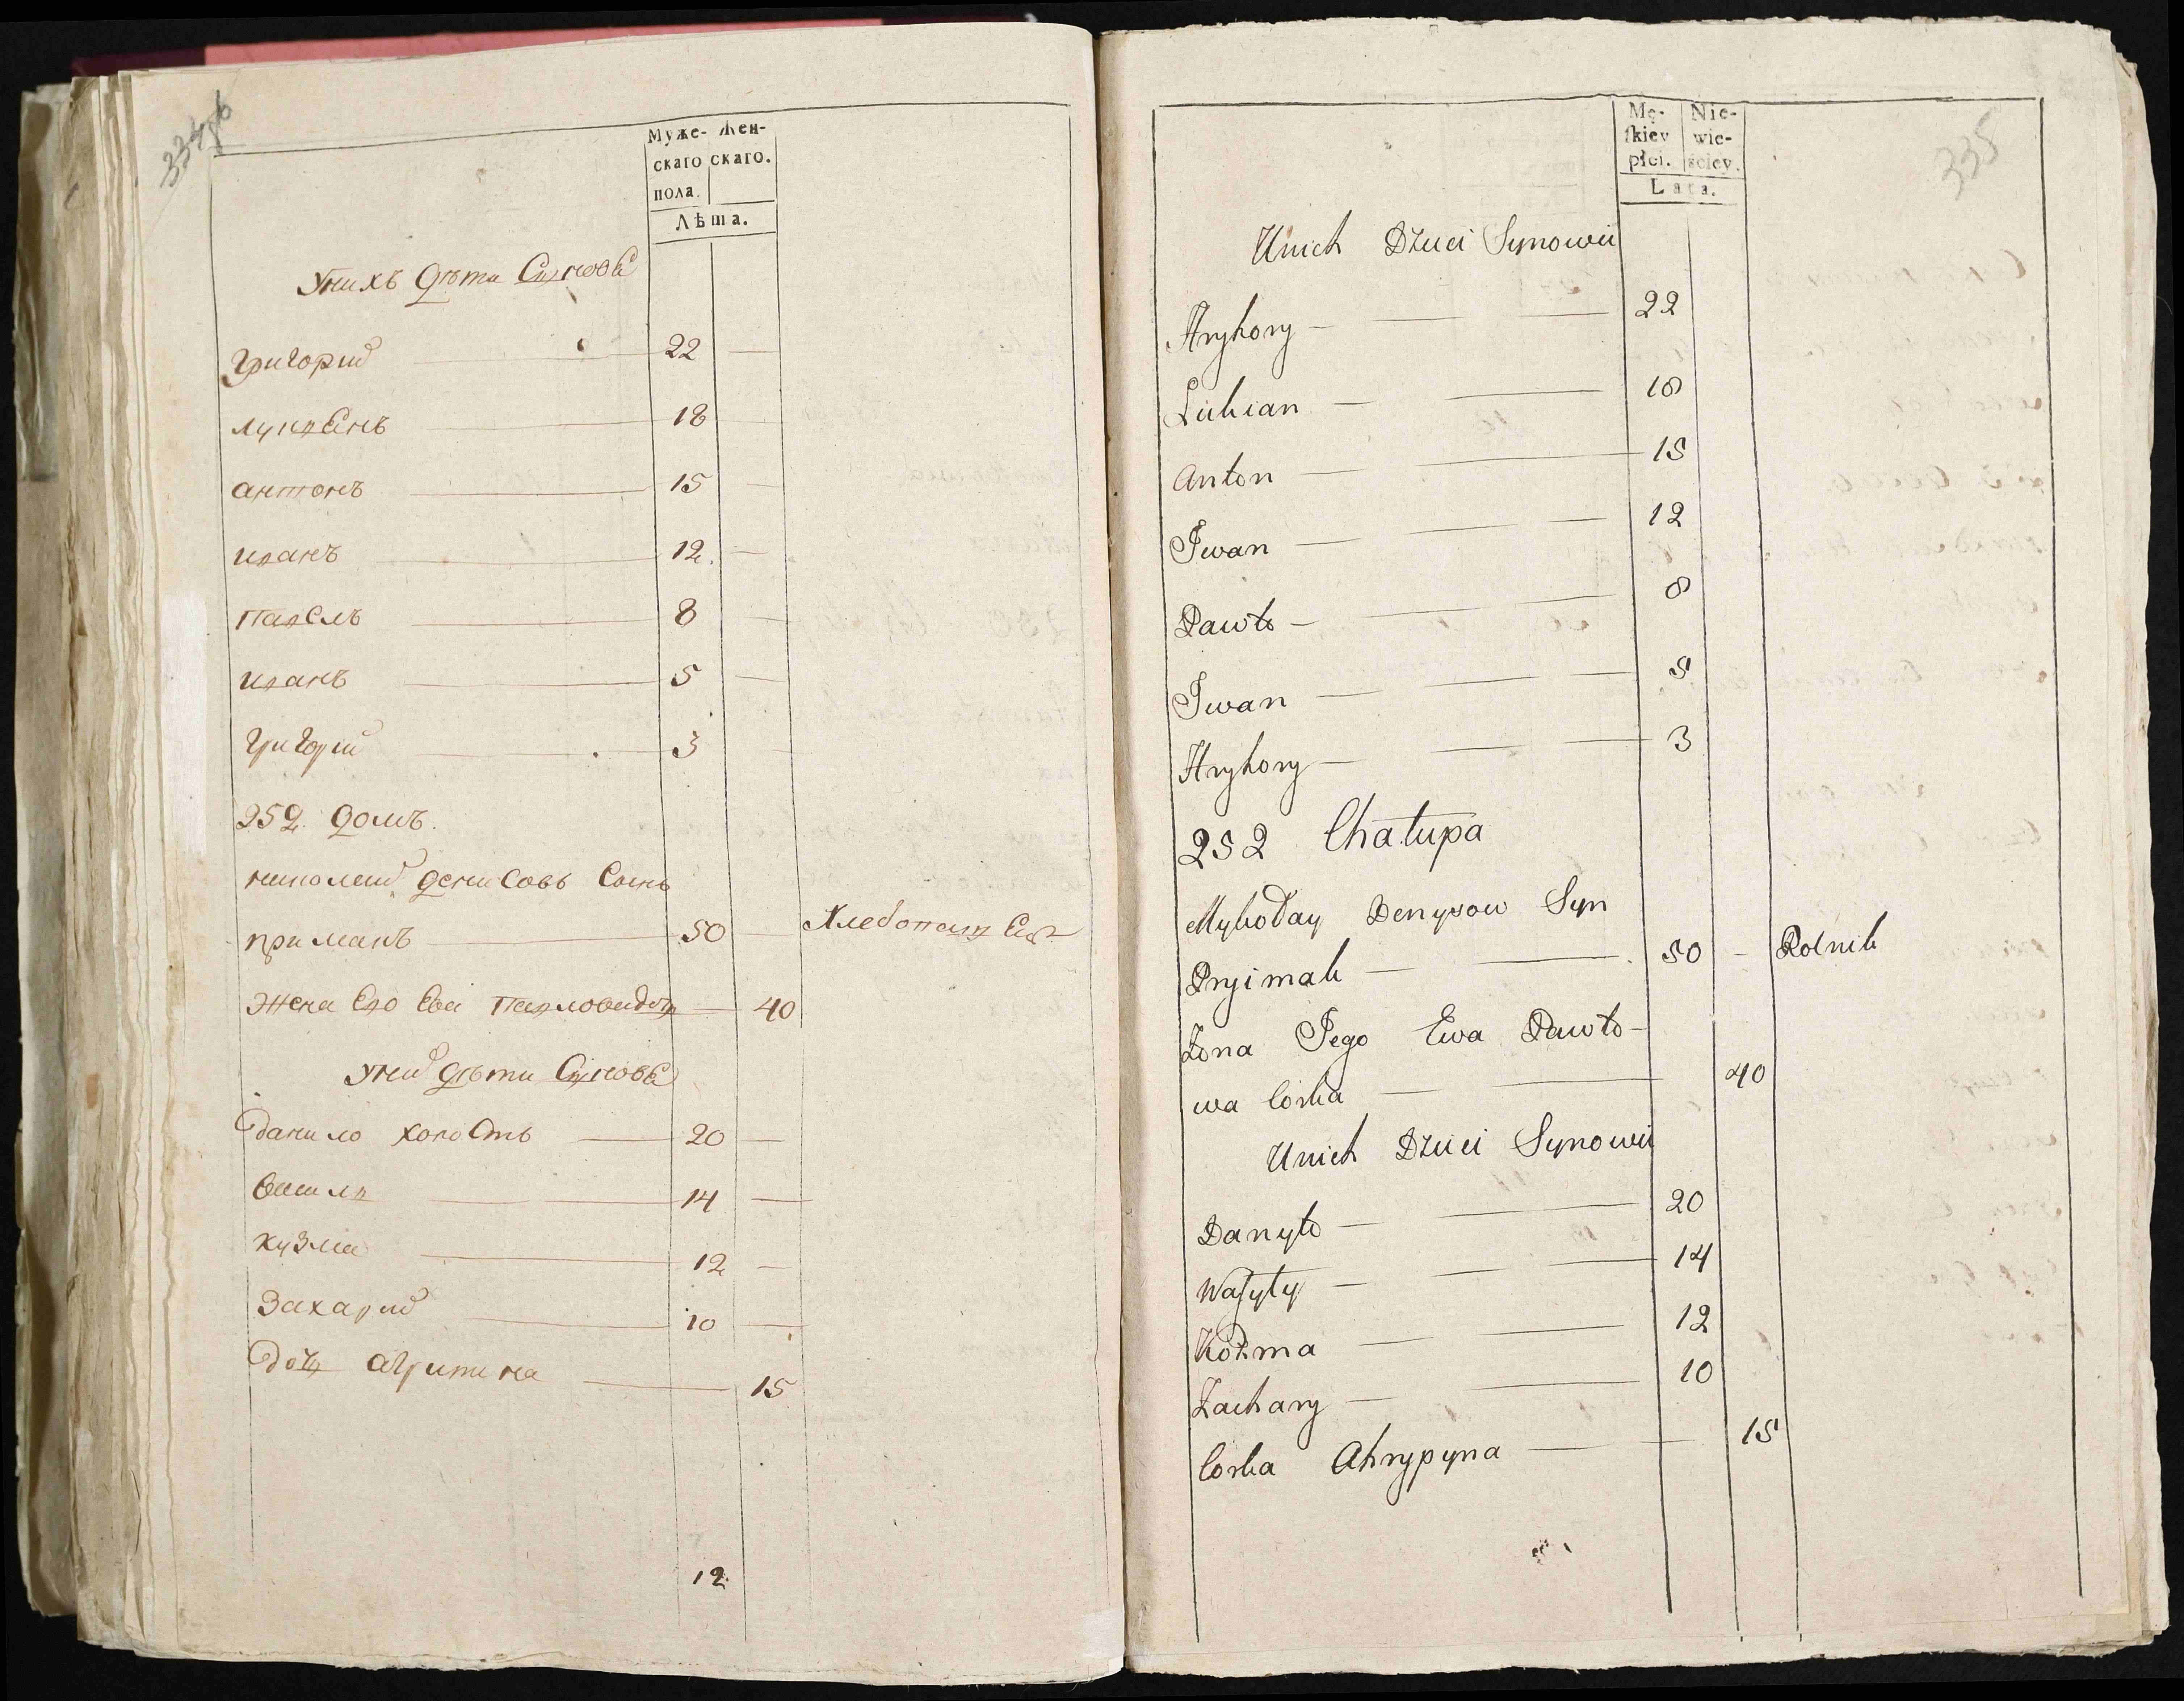 334об
Муже- Жен-
скаго скаго.
пола.
Лѣта.
Унихъ дѣти Сынове
Григорий 22
лукяенъ 18
антонъ 15
иванъ 12
павелъ 8
иванъ 5
Григорий 3
252 домъ.
николай денисовъ Сынъ
приманъ 50 Хлебопашец
Жена Его Ева павлова дочь 40
Уний дѣти Сынове
Данило холостъ 20
Василь 14
кузма 12
Захарий 10
Дочь агрипина 15
12
335
Mę- Nie-
skiey wie-
płci. ściey.
Lata.
Unich Dzieci Synowii
Hryhory 22
Lukian 18
Anton 15
Iwan 12
Pawło 8
Iwan 5
Hryhory 3
252 Chałupa
Mykołay Denysow Syn
Pryimak 50 Rolnik
Żona Jego Ewa Pawło-
wa Corka 40
Unich Dzieci Synowii
Danyło 20
Wasyly 14
Kozma 12
Zachary 10
Corka Ahrypyna 15